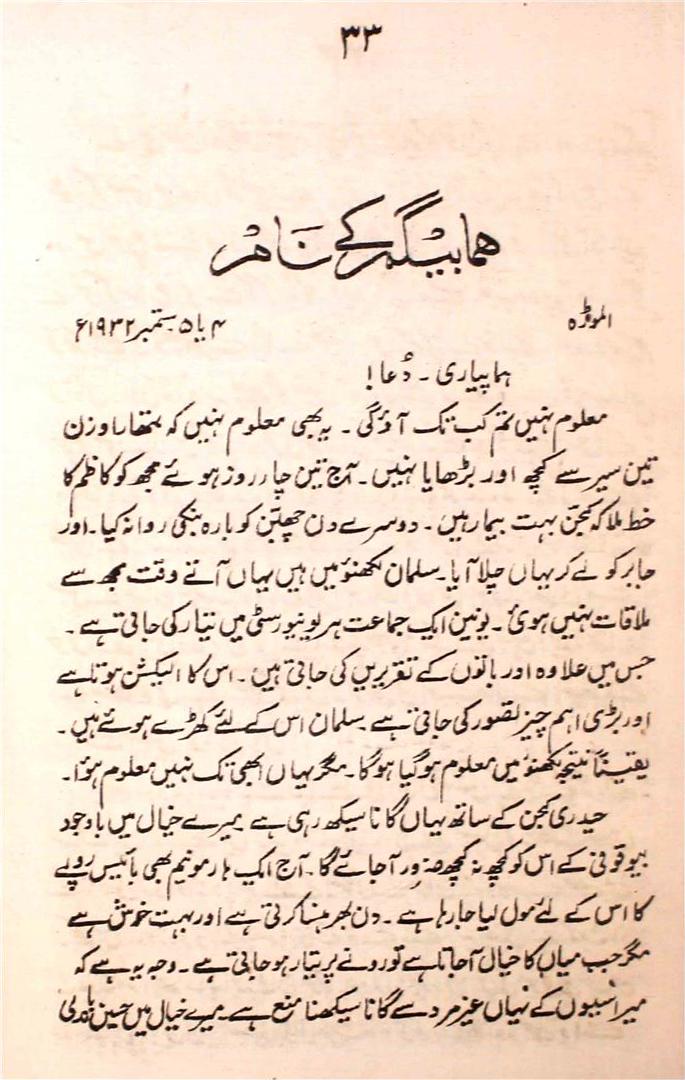 ۳۳
ھما بیگم کے نام
الموڑہ
۴ یا ۵ ستمبر ۱۹۳۲ء
ہما پیاری ۔ دُعا !
معلوم نہیں تم کب تک آؤگی ۔ یہ بھی معلوم نہیں کہ تمھارا وزن
تین سیر سے کچھ اور بڑھا یا نہیں ۔ آج تین چار روز ہوئے مجھ کو کاظم کا
خط ملا کہ کجن بہت بیمار ہیں ۔ دوسرے دن چھبّن کو بارہ بنکی روانہ کیا ۔ اور
جابر کو لے کر یہاں چلا آیا ۔ سلمان لکھنؤ میں ہیں یہاں آتے وقت مجھ سے
ملاقات نہیں ہوئی ۔ یونین ایک جماعت ہر یونیورسٹی میں تیار کی جاتی ہے ۔
جس میں علاوہ اور باتوں کے تقریریں کی جاتی ہیں ۔ اس کا الیکشن ہوتا ہے
اور بڑی اہم چیز تصور کی جاتی ہے ۔ سلمان اس کے لئے کھڑے ہوئے ہیں ۔
یقیناً نتیجہ لکھنؤ میں معلوم ہو گیا ہوگا ۔ مگر یہاں ابھی تک نہیں معلوم ہوُا ۔
حیدری کجن کے ساتھ یہاں گانا سیکھ رہی ہے میرے خیال میں باوجود
بیوقوفی کے اس کو کچھ نہ کچھ ضرور آجائے گا ۔ آج ایک ہارمونیم بھی بائیس روپے
کا اس کے لئے مول لیا جا رہا ہے ۔ دن بھر ہنسا کرتی ہے اور بہت خوش ہے
مگر جب میاں کا خیال آجاتا ہے تو رونے پر تیار ہو جاتی ہے ۔ وجہ یہ ہے کہ
میراسیوں کے یہاں غیر مرد سے گانا سیکھنا منع ہے ۔ میرے خیال میں حسین باندی